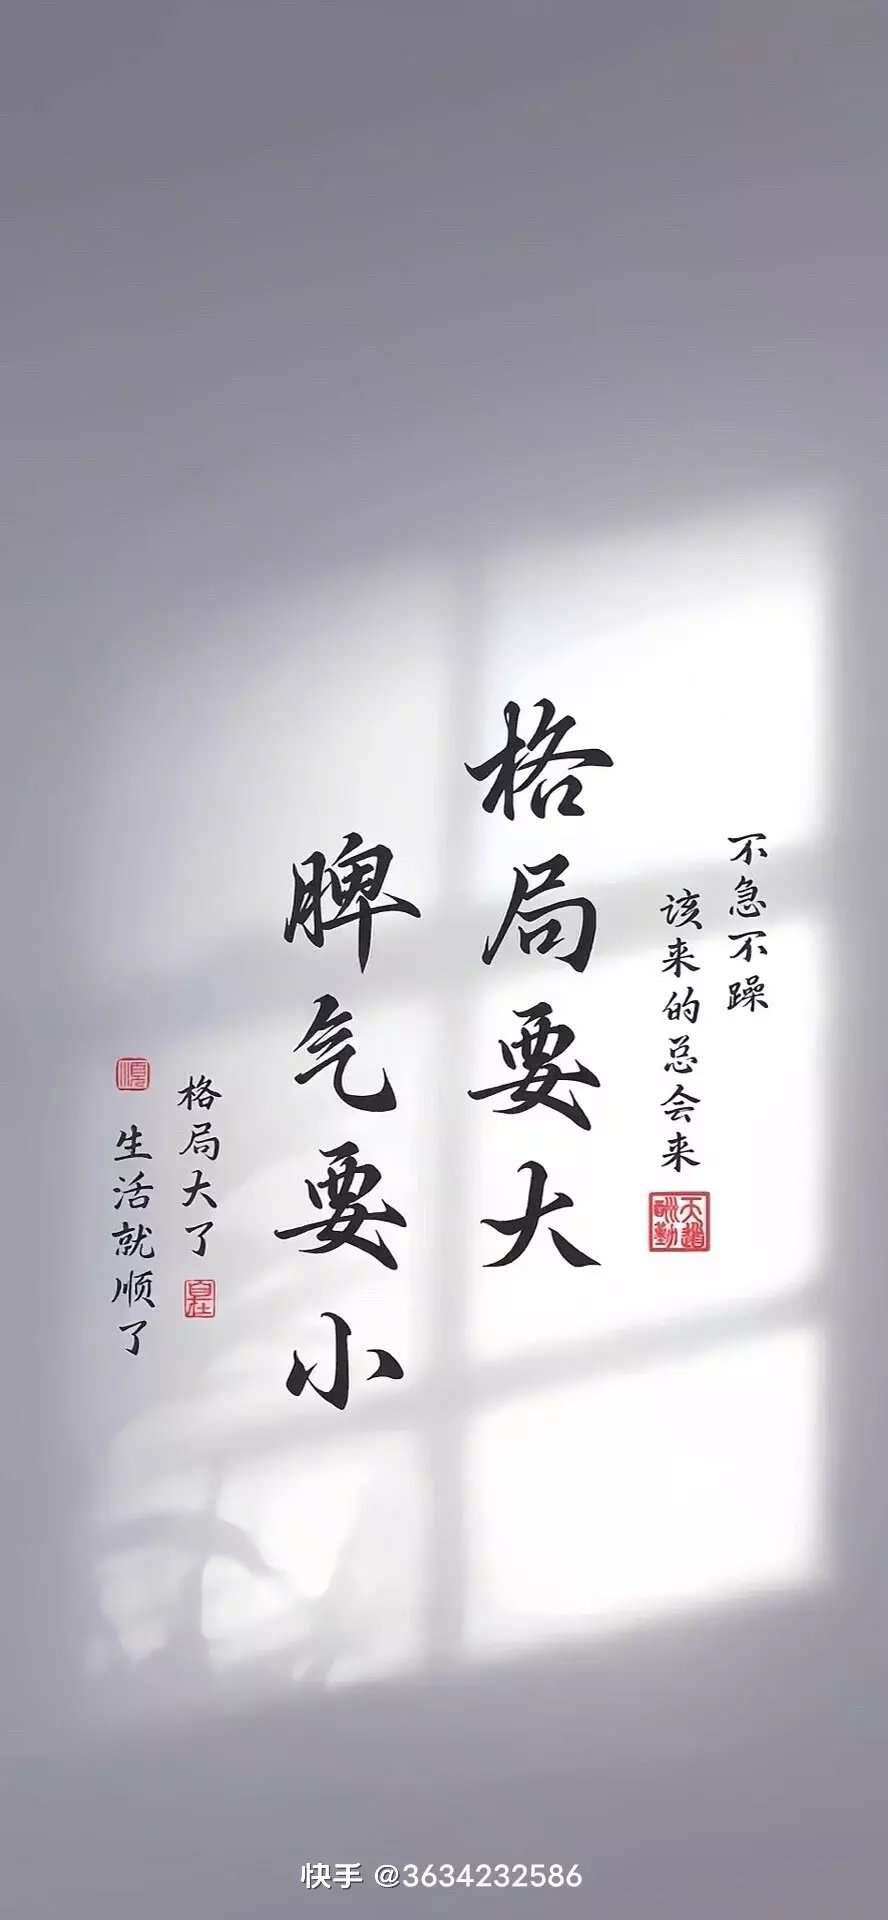 不急不躁
该来的总会来
天道酬勤
格局要大
脾气要小
格局大了
自在
生活就顺了
快手 @3634232586